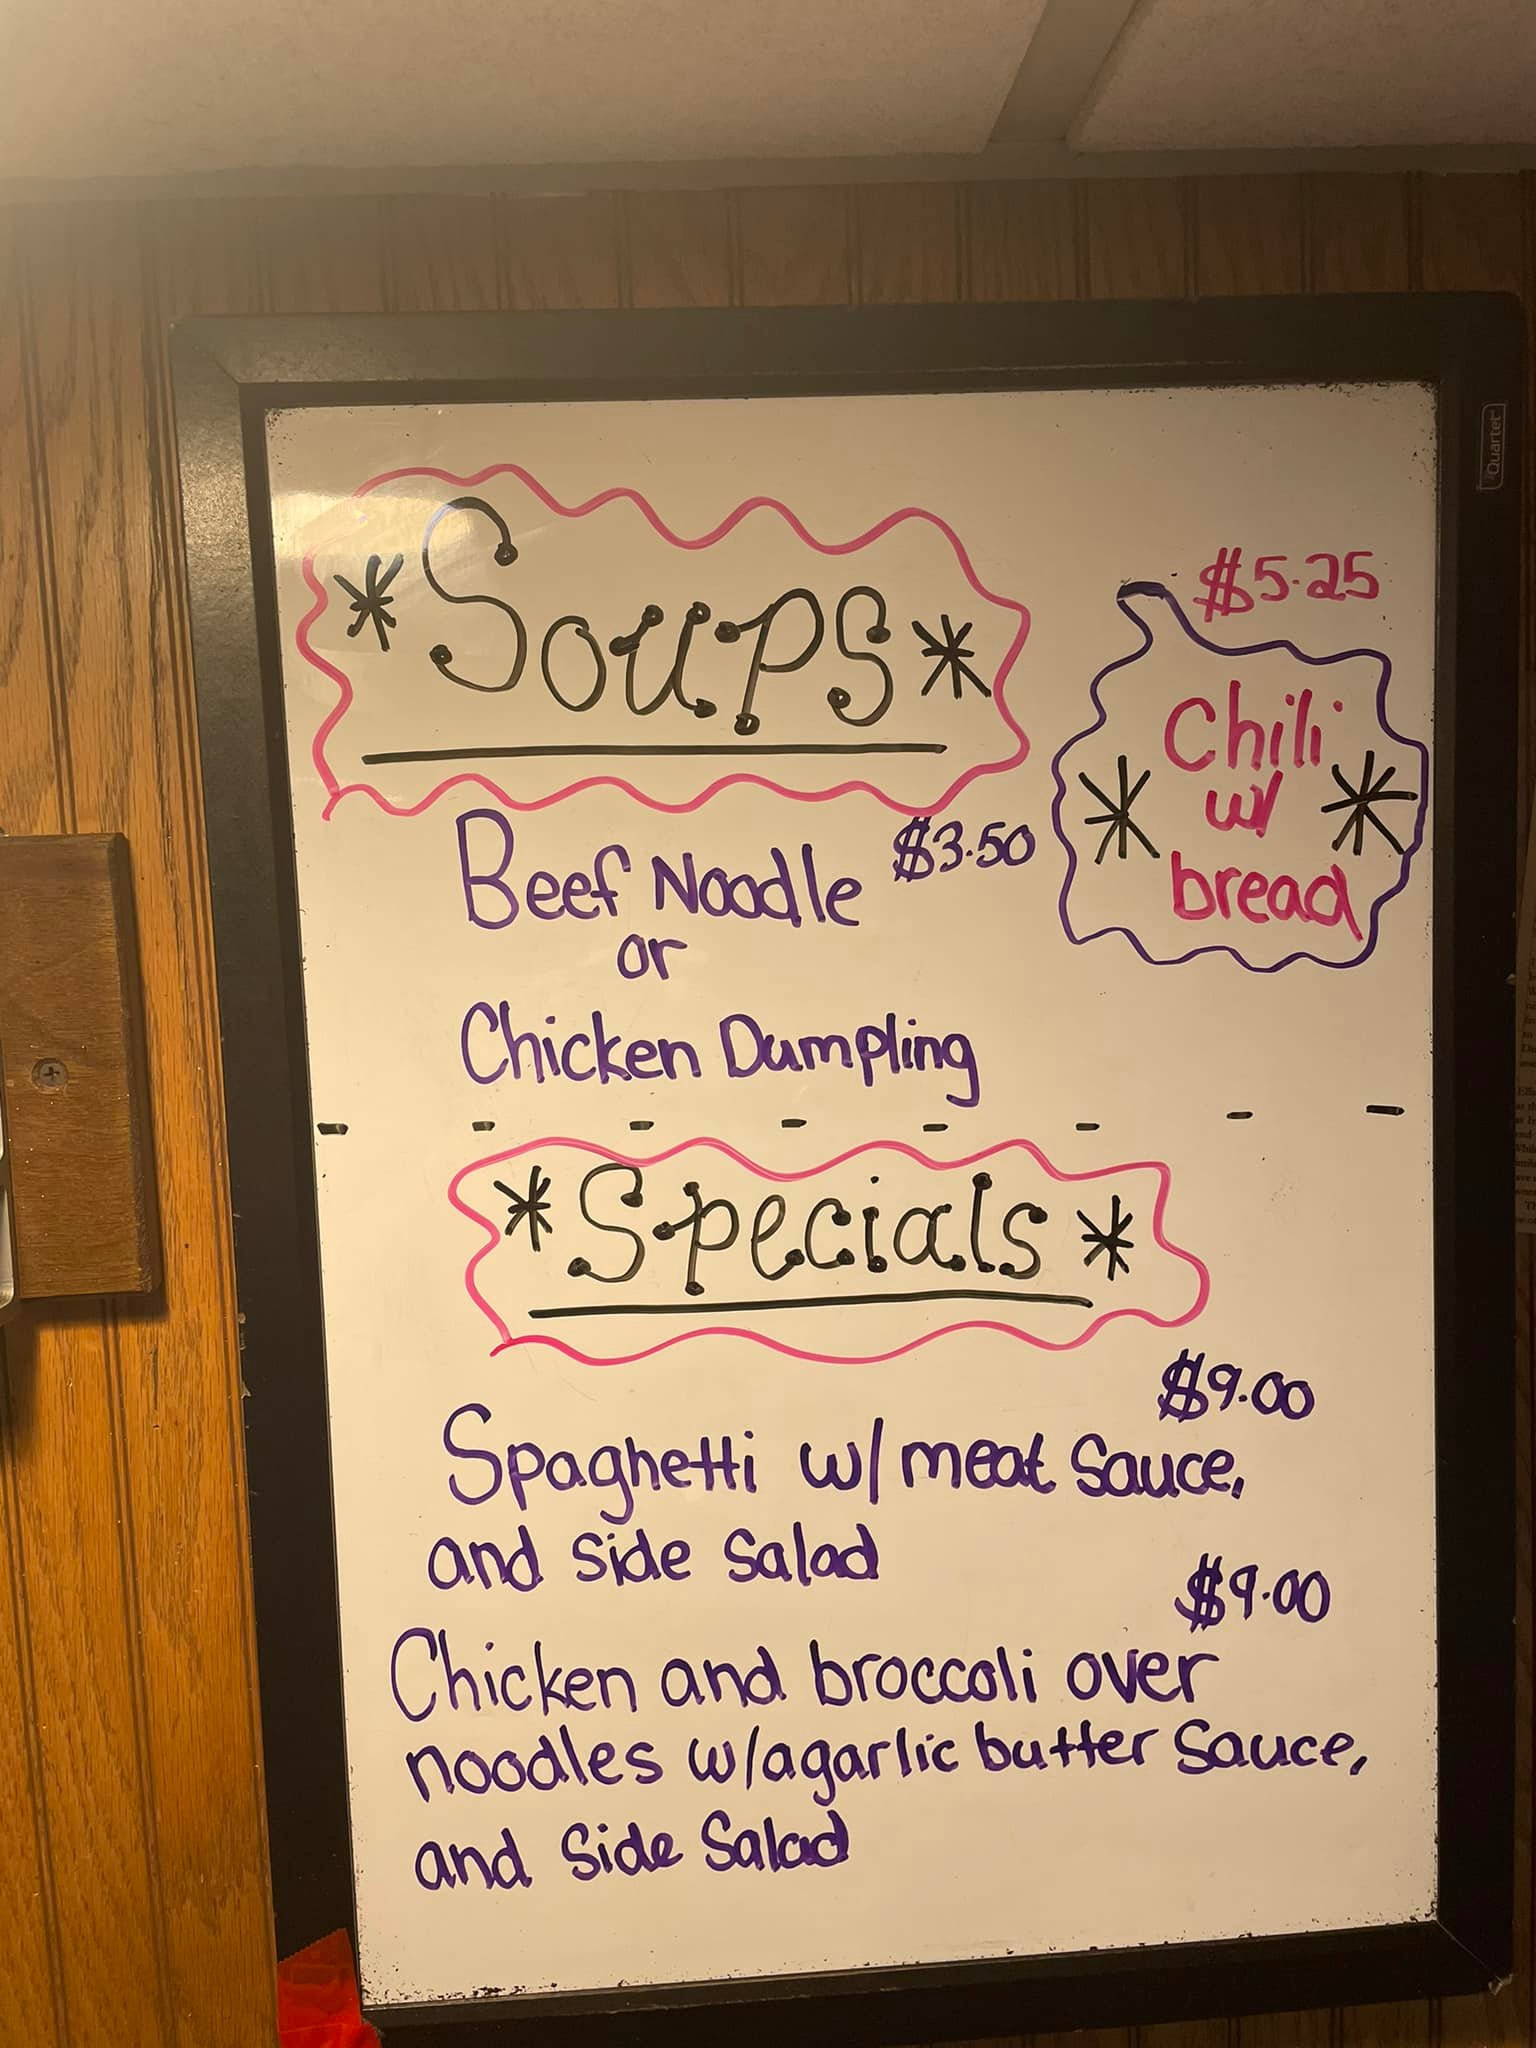 Quartet
*Soups*
$5.25
Chili
w/
bread
* *
Beef Noodle $3.50
or
Chicken Dumpling
- - - - - - - -
*Specials*
$9.00
Spaghetti w/ meat sauce,
and side salad
$9.00
Chicken and broccoli over
noodles w/a garlic butter sauce,
and side salad